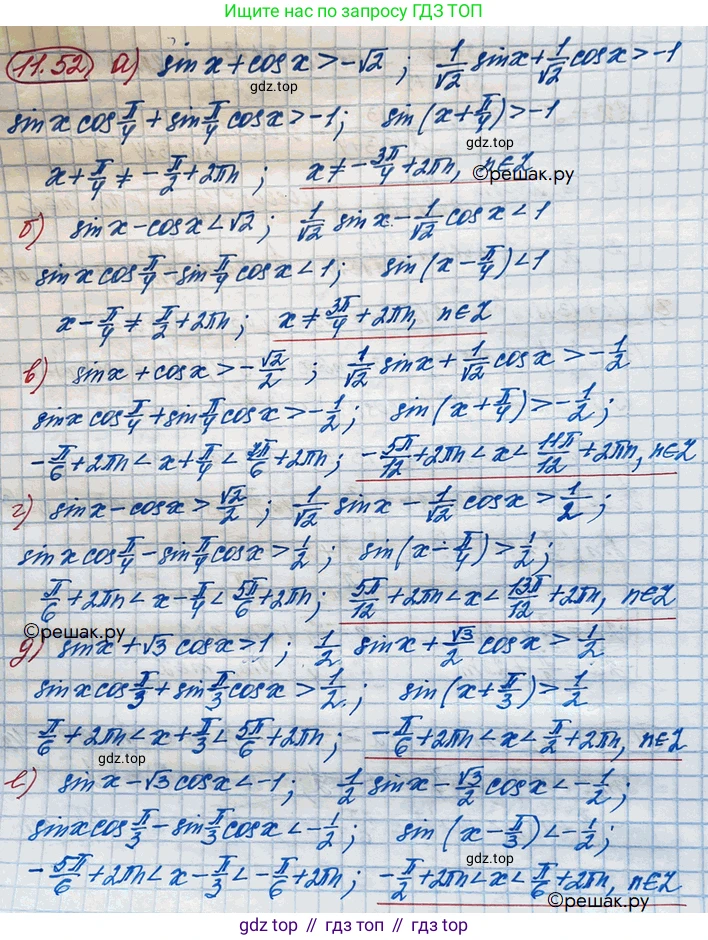 Ищите нас по запросу ГДЗ ТОП
11.52 а) sin x + cos x > -√2 ; 1/√2 sin x + 1/√2 cos x > -1
gdz.top
sin x cos π/4 + sin π/4 cos x > -1 ; sin (x + π/4) > -1
gdz.top
x + π/4 ≠ -π/2 + 2πn ; x ≠ -3π/4 + 2πn, n∈Z
©решак.ру
б) sin x - cos x < √2 ; 1/√2 sin x - 1/√2 cos x < 1
sin x cos π/4 - sin π/4 cos x < 1 ; sin (x - π/4) < 1
x - π/4 ≠ π/2 + 2πn ; x ≠ 3π/4 + 2πn, n∈Z
в) sin x + cos x > -√2/2 ; 1/√2 sin x + 1/√2 cos x > -1/2
sin x cos π/4 + sin π/4 cos x > -1/2 ; sin (x + π/4) > -1/2 ;
-π/6 + 2πn < x + π/4 < 7π/6 + 2πn ; -5π/12 + 2πn < x < 11π/12 + 2πn, n∈Z
г) sin x - cos x > √2/2 ; 1/√2 sin x - 1/√2 cos x > 1/2 ;
sin x cos π/4 - sin π/4 cos x > 1/2 ; sin (x - π/4) > 1/2 ;
π/6 + 2πn < x - π/4 < 5π/6 + 2πn ; 5π/12 + 2πn < x < 13π/12 + 2πn, n∈Z
©решак.ру
д) sin x + √3 cos x > 1 ; 1/2 sin x + √3/2 cos x > 1/2
sin x cos π/3 + sin π/3 cos x > 1/2 ; sin (x + π/3) > 1/2
π/6 + 2πn < x + π/3 < 5π/6 + 2πn ; -π/6 + 2πn < x < π/2 + 2πn, n∈Z
gdz.top
gdz.top
е) sin x - √3 cos x < -1 ; 1/2 sin x - √3/2 cos x < -1/2 ;
sin x cos π/3 - sin π/3 cos x < -1/2 ; sin (x - π/3) < -1/2 ;
-5π/6 + 2πn < x - π/3 < -π/6 + 2πn ; -π/2 + 2πn < x < π/6 + 2πn, n∈Z
©решак.ру
gdz.top // гдз.топ // гдз.top